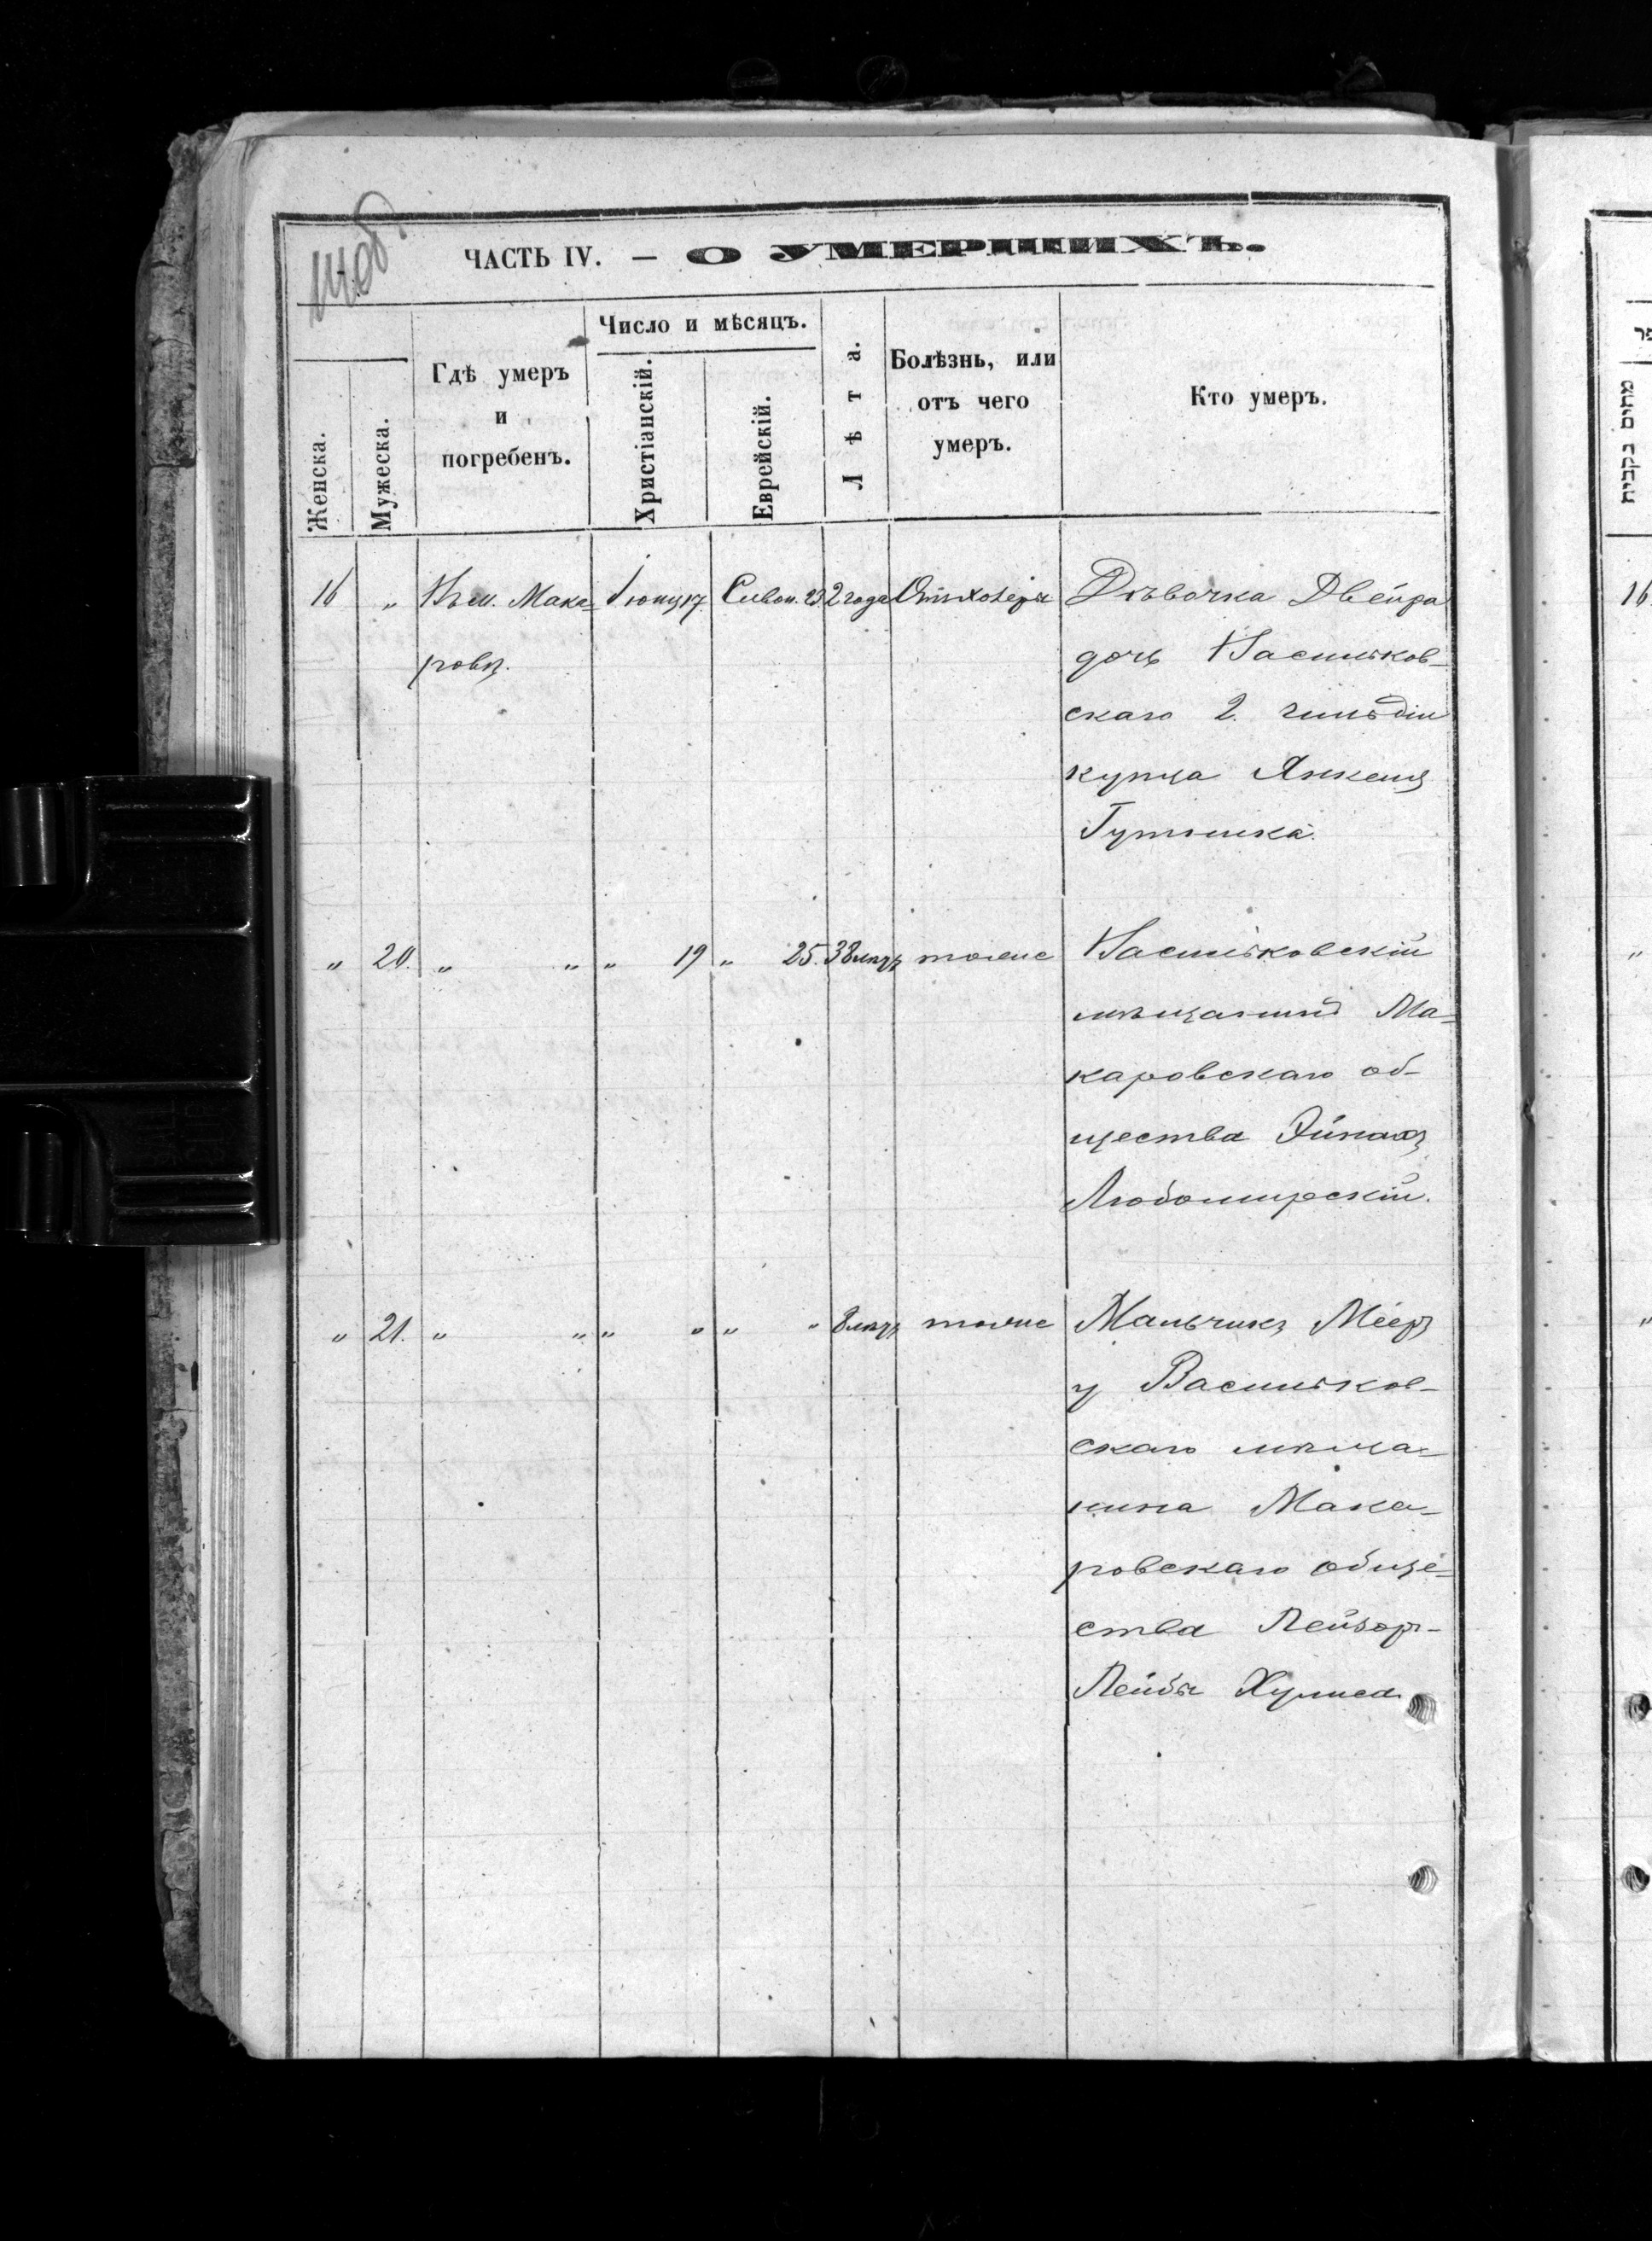 ЧАСТЬ IV. — О УМЕРШИХЪ.
Женска.
Мужеска.
Гдѣ умеръ
и
погребенъ.
Число и мѣсяцъ.
Христіанскій.
Еврейскій.
Лѣта.
Болѣзнь, или
отъ чего
умеръ.
Кто умеръ.
16 „ Въ м. Мака- Іюня 17. Сивон. 23 2 года Отъ холеры Дѣвочка Двейра
ровѣ. дочь Васильков-
скаго 2. гильдіи
купца Янкеля
Гутника.
„ 20. „ „ „ 19 „ 25. 38 лѣтъ тоже Васильковскій
мѣщанинъ Ма-
каровскаго об-
щества Эйнахъ
Любомирскій.
„ 21. „ „ „ „ „ „ 8 лѣтъ тоже Мальчикъ Мееръ
у Васильков-
скаго мѣща-
нина Мака-
ровскаго обще-
ства Лейзор-
Лейбы
פר
מתים נקבות
16
„
„